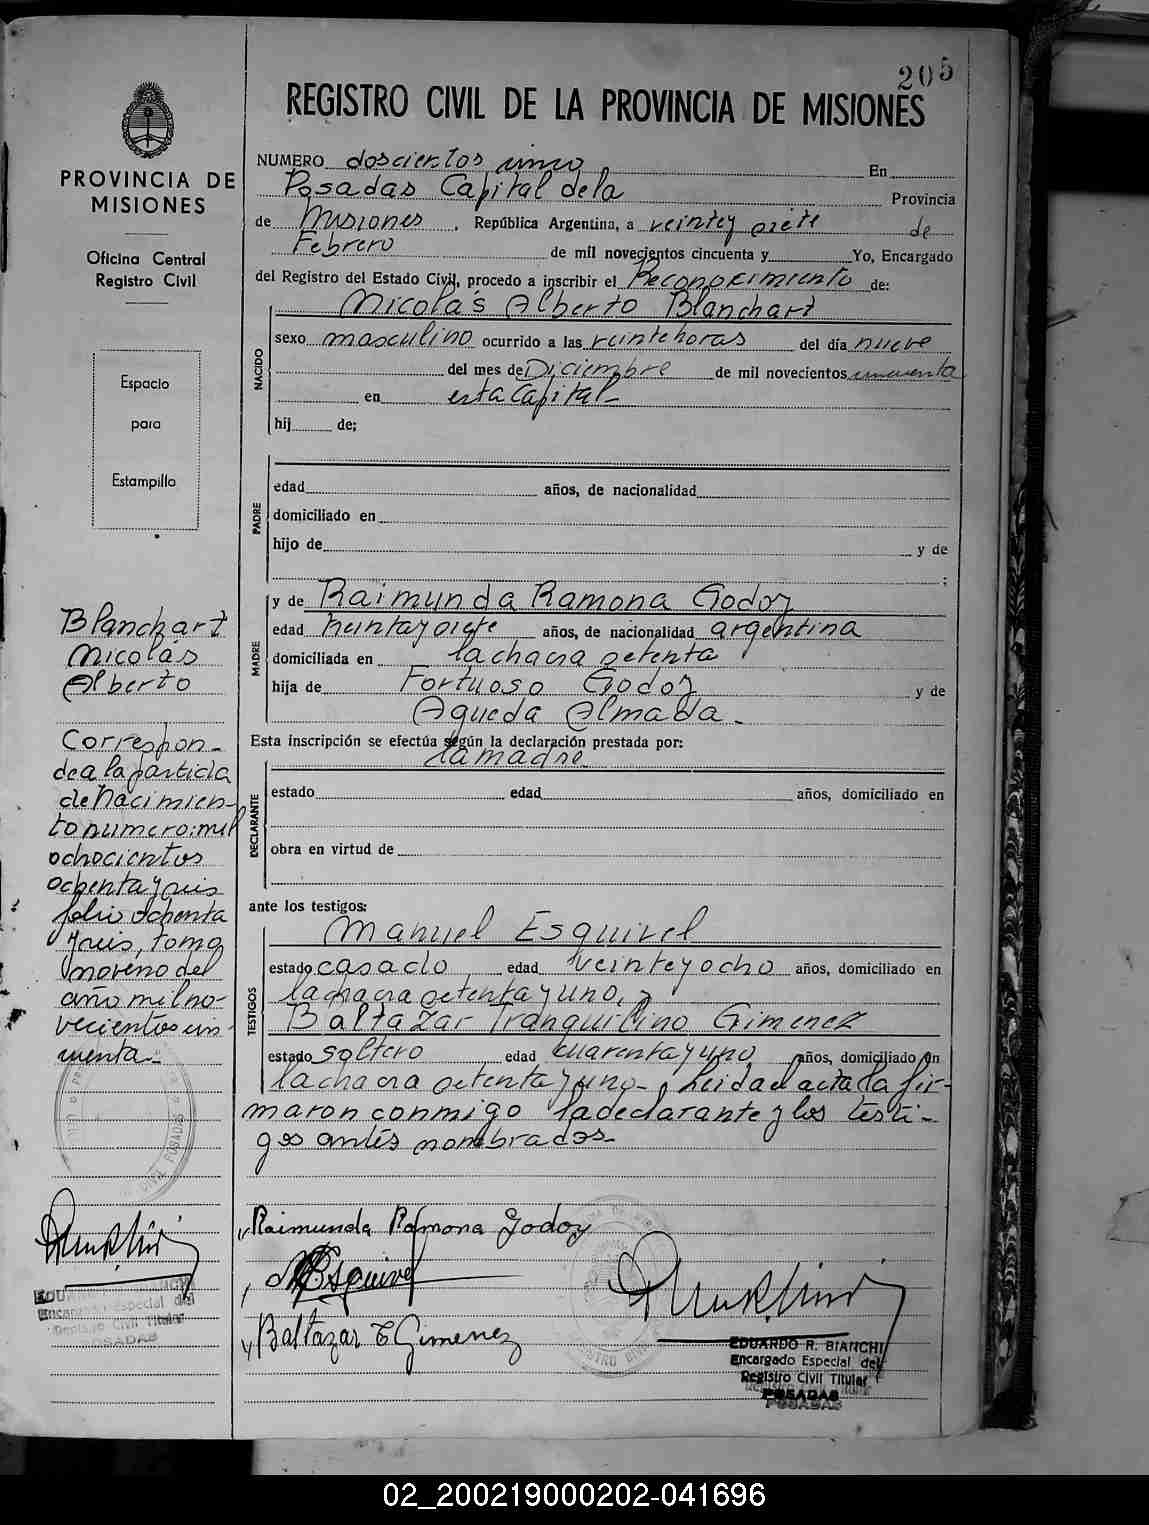 205
REGISTRO CIVIL DE LA PROVINCIA DE MISIONES
PROVINCIA DE
MISIONES
Oficina Central
Registro Civil
Espacio
para
Estampilla
Blanchart
Nicolás
Alberto
Correspon-
de a la partida
de Nacimien-
to numero: mil
ochocientos
ochenta y seis
folio ochenta
y seis, tomo
noveno del
año mil no-
vecientos cin-
cuenta.-
NUMERO doscientos cinco En
Posadas Capital de la Provincia
de Misiones, República Argentina, a veinte y siete de
Febrero de mil novecientos cincuenta y Yo, Encargado
del Registro del Estado Civil, procedo a inscribir el Reconocimiento de:
Nicolás Alberto Blanchart
NACIDO
sexo masculino ocurrido a las veinte horas del día nueve
del mes de Diciembre de mil novecientos cincuenta
en esta Capital-
hij de;
PADRE
edad años, de nacionalidad
domiciliado en
hijo de y de
;
MADRE
y de Raimunda Ramona Godoy
edad treinta y siete años, de nacionalidad argentina
domiciliada en la chacra setenta
hija de Fortuoso Godoy y de
Agueda Almada -
Esta inscripción se efectúa según la declaración prestada por:
la madre
DECLARANTE
estado edad años, domiciliado en
obra en virtud de
ante los testigos:
TESTIGOS
Manuel Esquivel
estado casado edad veinte y ocho años, domiciliado en
la chacra setenta y uno, y
Baltazar Tranquilino Gimenez
estado soltero edad cuarenta y uno años, domiciliado en
la chacra setenta y uno- Leida el acta la fir-
maron conmigo la declarante y los testi-
gos antes nombrados-
Raimunda Ramona Godoy
M Esquivel
Baltazar T Gimenez
EDUARDO R. BIANCHI
Encargado Especial del
Registro Civil Titular
POSADAS
Encargado Especial del
Registro Civil Titular
POSADAS
02_200219000202-041696